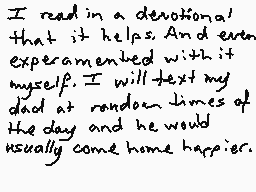 I read in a devotional
that it helps. And even
experamented with it
myself. I will text my
dad at random times of
the day and he would
usually come home happier.